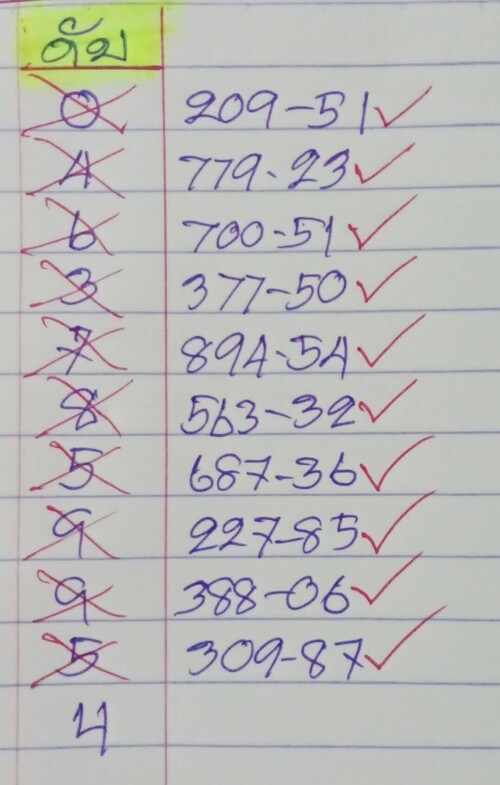 ดับ
0 209-51
4 779-23
6 700-51
3 377-50
7 894-54
8 563-32
5 687-36
9 227-85
9 388-06
5 309-87
4